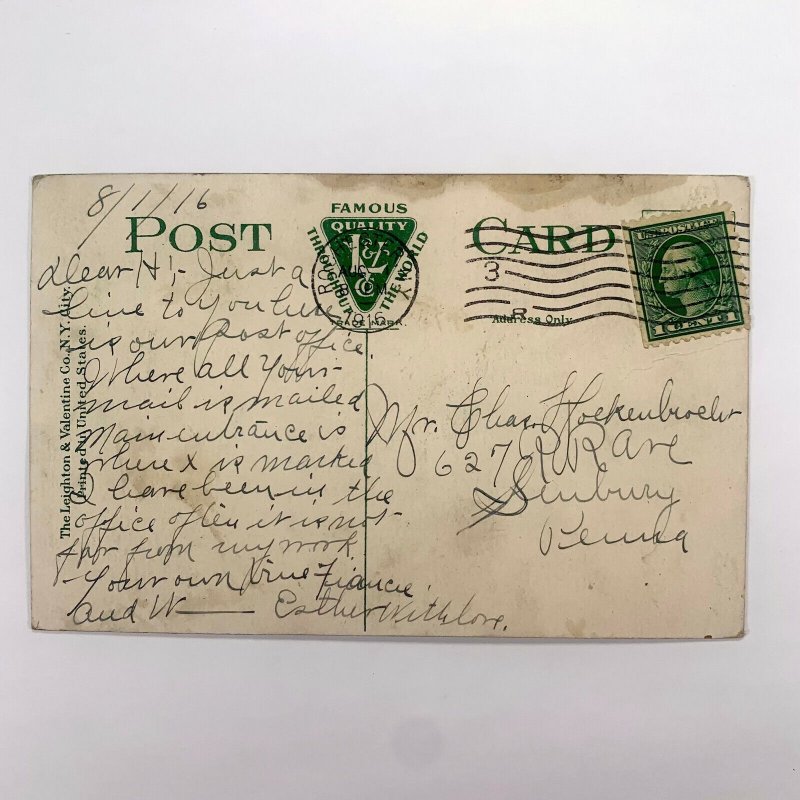 8/1/16
POST CARD
FAMOUS
QUALITY
THROUGHOUT THE WORLD
L&V
Co
TRADE MARK.
AUG
1916
3
R
U.S. POSTAGE
1 CENT 1
Address Only
The Leighton & Valentine Co., N.Y. City.
Printed in United States.
Dear H;- Just a
line to You here
is our post office.
Where all Your-
mail is mailed
Main entrance is
where X is marked
I have been in the
office often it is not-
far from my work.
Your own true Fiancie.
and W—— Esther With love.
Mr. Chas. Hockenbrocht
627 R R Ave
Sunbury
Penna